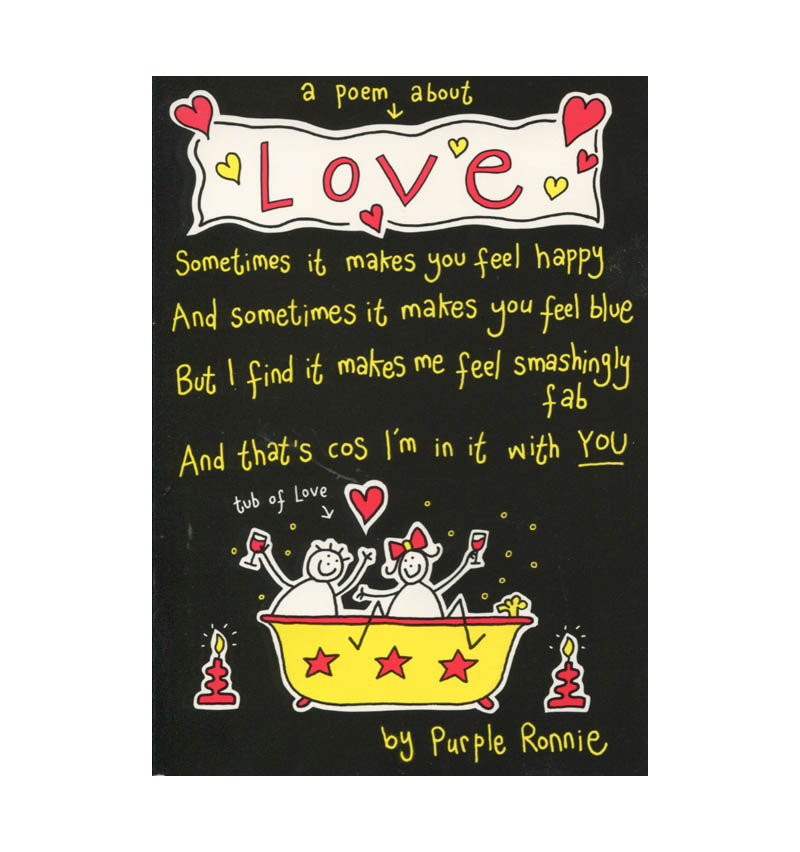 a poem about
Love
Sometimes it makes you feel happy
And sometimes it makes you feel blue
But I find it makes me feel smashingly
fab
And that's cos I'm in it with YOU
tub of Love
by Purple Ronnie